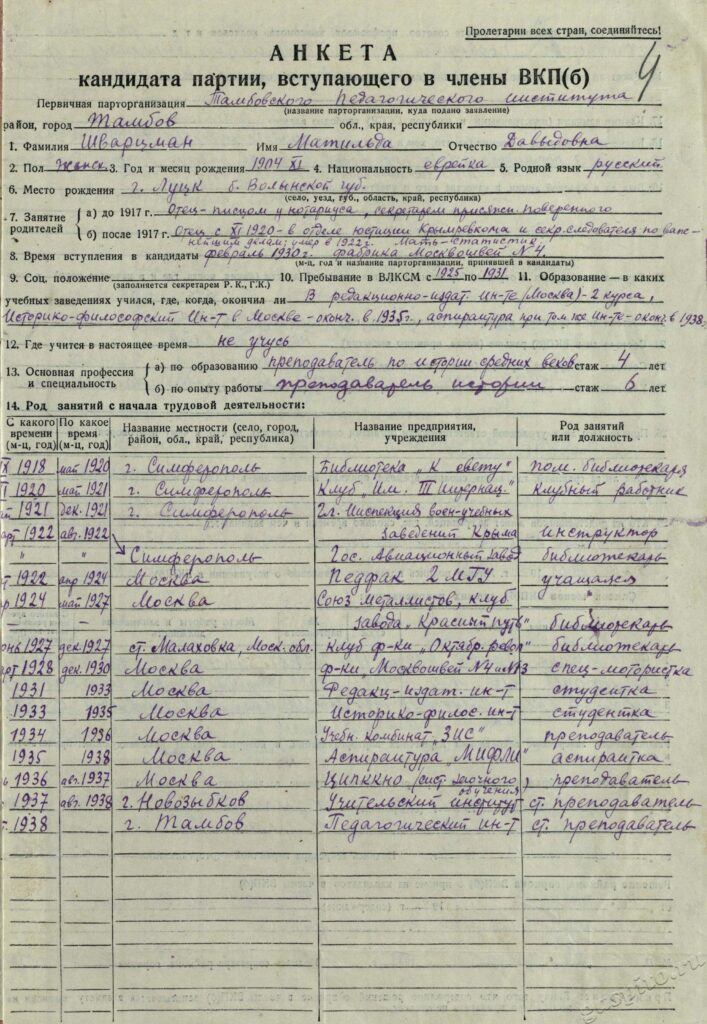 Пролетарии всех стран, соединяйтесь!
АНКЕТА
4
кандидата партии, вступающего в члены ВКП(б)
Первичная парторганизация Тамбовского Педагогического института
(название парторганизации, куда подано заявление)
район, город Тамбов обл., края, республики
1. Фамилия Шварцман Имя Матильда Отчество Давыдовна
2. Пол женск. 3. Год и месяц рождения 1904 XI 4. Национальность еврейка 5. Родной язык русский
6. Место рождения г. Луцк б. Волынской губ.
(село, уезд, губ., область, край, республика)
7. Занятие родителей
а) до 1917 г. Отец-писцом у нотариуса, секретарем присяжн. поверенного
б) после 1917 г. Отец с XI 1920 - в отделе юстиции Крымревкома и секр. следователя по важнейшим делам; умер в 1922 г. Мать - статистик
8. Время вступления в кандидаты февраль 1930 г. фабрика Москвошвей №4.
(м-ц, год и название парторганизации, принявшей в кандидаты)
9. Соц. положение 10. Пребывание в ВЛКСМ с 1925 по 1931 11. Образование — в каких
(заполняется секретарем Р. К., Г.К.)
учебных заведениях учился, где, когда, окончил ли В редакционно-издат. ин-те (Москва) - 2 курса,
Историко-философский Ин-т в Москве - оконч. в 1935 г., аспирантура при том же Ин-те - оконч. в 1938,
12. Где учится в настоящее время не учусь
13. Основная профессия и специальность
а) по образованию преподаватель по истории средних веков стаж 4 лет
б) по опыту работы преподаватель истории стаж 6 лет
14. Род занятий с начала трудовой деятельности:
С какого времени (м-ц, год) По какое время (м-ц, год) Название местности (село, город, район, обл., край, республика) Название предприятия, учреждения Род занятий или должность
X 1918 май 1920 г. Симферополь Библиотека „К свету" пом. библиотекаря
1920 май 1921 г. Симферополь Клуб „Им. III Интернац." клубный работник
1921 дек. 1921 г. Симферополь Гл. Инспекция воен-учебных
март 1922 авг. 1922 заведений Крыма инструктор
" " Симферополь Гос. Авиационный завод библиотекарь
1922 апр 1924 Москва Педфак 2 МГУ учащаяся
1924 май 1927 Москва Союз Металлистов, клуб "
— — завода „Красный путь" библиотекарь
1927 дек. 1927 ст. Малаховка, Моск. обл. клуб ф-ки „Октябр. револ" библиотекарь
март 1928 дек. 1930 Москва ф-ки „Москвошвей №4 и №13 спец-мотористка
1931 1933 Москва Редакц-издат. ин-т студентка
1933 1935 Москва Историко-филос. ин-т студентка
1934 1936 Москва Учебн. комбинат „ЗИС" преподаватель
1935 1938 Москва Аспирантура „МИФЛИ" аспирантка
1936 авг. 1937 Москва ЦИПККНО (сист. заочного обучения) преподаватель
1937 авг. 1938 г. Новозыбков Учительский институт ст. преподаватель
1938 г. Тамбов Педагогический ин-т ст. преподаватель